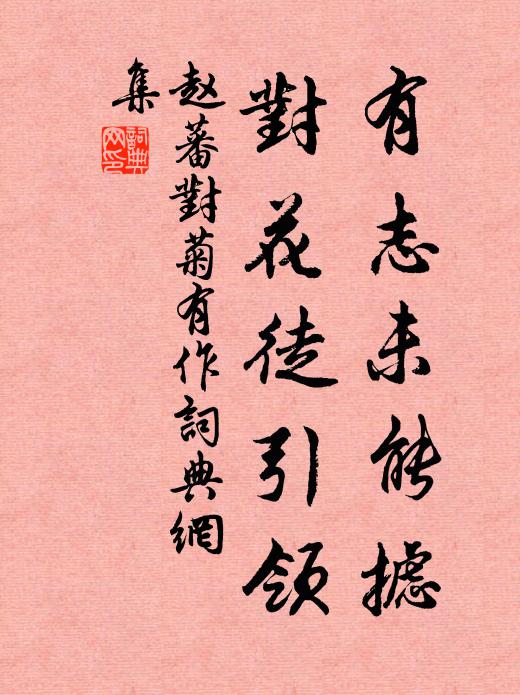 有志未能攄
對花徒引領
赵蕃對菊有作詞典網
集
詞典
网印